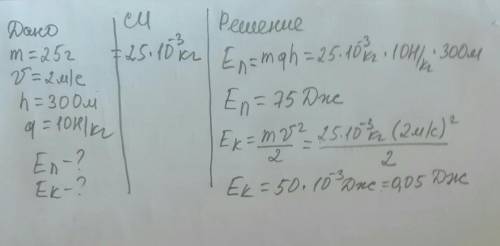 Дано
m = 25г
v = 2м/с
h = 300м
g = 10Н/кг
Eп - ?
Eк - ?
СИ
= 25·10⁻³кг
Решение
Eп = mgh = 25·10⁻³кг · 10Н/кг · 300м
Eп = 75 Дж
Eк = mv²/2 = 25·10⁻³кг (2м/с)²/2
Eк = 50·10⁻³Дж = 0,05 Дж